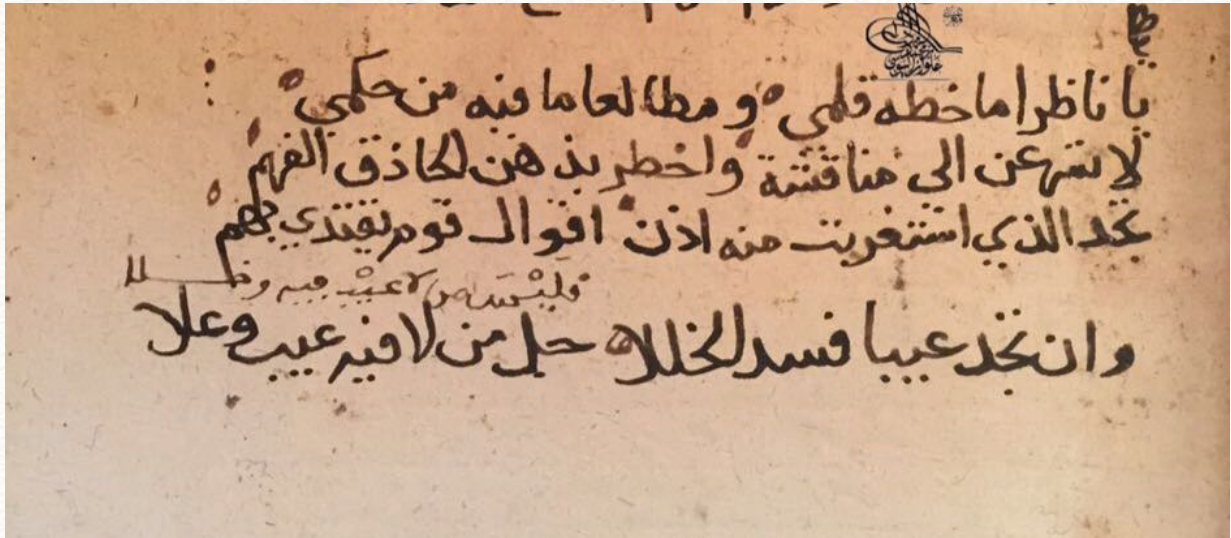 يا ناظرا ما خطه قلمي و مطالعا ما فيه من حكمي
لا تسرعن الي مناقشة واخطر بذهن الحاذق الفهم
تجد الذي استغربت منه اذن اقوال قوم نقتدي بهم
فليس من لا عيب فيه و
وان تجد عيبا فسد الخللا جل من لا فيه عيب وعلا